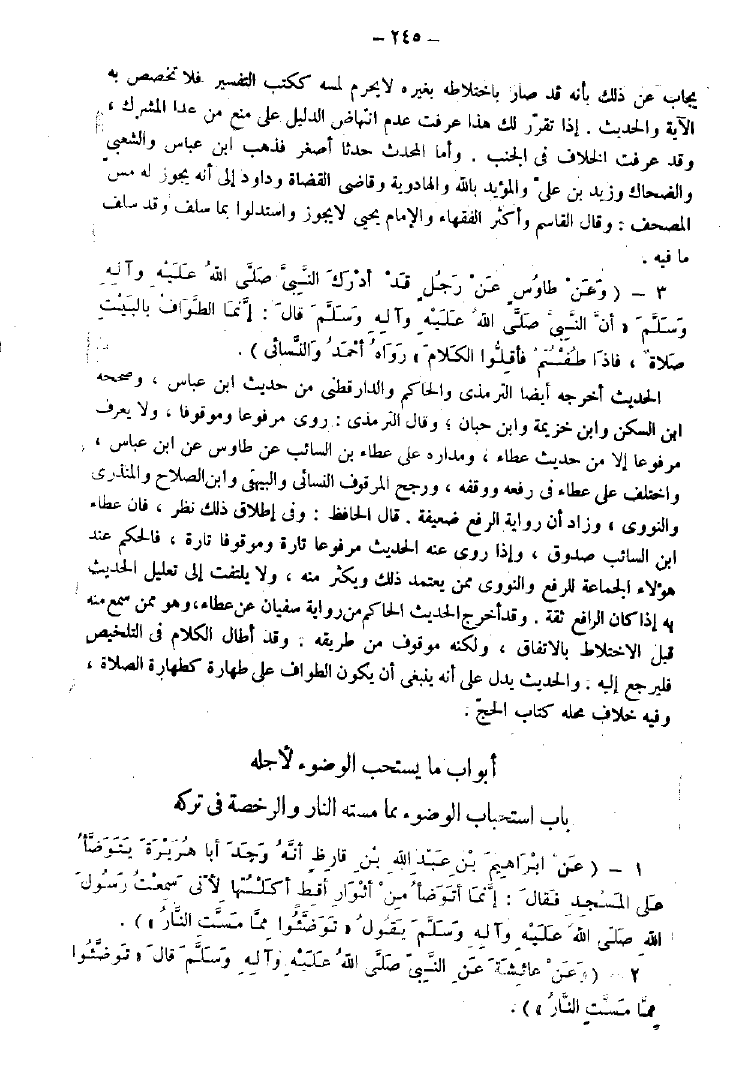 – ٢٤٥ –
يجاب عن ذلك بأنه قد صار باختلاطه بغيره لايحرم لمسه ككتب التفسير فلا تخصص به
الآية والحديث . إذا تقرّر لك هذا عرفت عدم انتهاض الدليل على منع من عدا المشرك ،
وقد عرفت الخلاف فى الجنب . وأما المحدث حدثا أصغر فذهب ابن عباس والشعبي
والضحاك وزيد بن علىّ والمؤيد بالله والهادوية وقاضى القضاة وداود إلى أنه يجوز له مسّ
المصحف : وقال القاسم وأكثر الفقهاء والإمام يحيى لايجوز واستدلوا بما سلف وقد سلف
ما فيه .
٣ – ( وَعَنْ طاوُسٍ عَنْ رَجُلٍ قَدْ أدْرَكَ النَّبِيَّ صَلَّى اللهُ عَلَيْهِ وآلِهِ
وَسَلَّمَ « أنَّ النَّبِيَّ صَلَّى اللهُ عَلَيْهِ وآلِهِ وَسَلَّمَ قالَ : إنَّمَا الطَّوَافُ بالبَيْتِ
صَلاةٌ ، فاذَا طُفْتُمْ فأقِلُّوا الكَلامَ » رَوَاهُ أحْمَدُ وَالنَّسائى ) .
الحديث أخرجه أيضا الترمذى والحاكم والدارقطنى من حديث ابن عباس ، وصححه
ابن السكن وابن خزيمة وابن حبان ؛ وقال الترمذى : روى مرفوعا وموقوفا ، ولا يعرف
مرفوعا إلا من حديث عطاء ، ومداره على عطاء بن السائب عن طاوس عن ابن عباس ،
واختلف على عطاء فى رفعه ووقفه ، ورجح الموقوف النسائى والبيهقى وابن الصلاح والمنذرى
والنووى ، وزاد أن رواية الرفع ضعيفة . قال الحافظ : وفى إطلاق ذلك نظر ، فان عطاء
ابن السائب صدوق ، وإذا روى عنه الحديث مرفوعا تارة وموقوفا تارة ، فالحكم عند
هؤلاء الجماعة للرفع والنووى ممن يعتمد ذلك ويكثر منه ، ولا يلتفت إلى تعليل الحديث
به إذا كان الرافع ثقة . وقد أخرج الحديث الحاكم من رواية سفيان عن عطاء، وهو ممن سمع منه
قبل الاختلاط بالاتفاق ، ولكنه موقوف من طريقه . وقد أطال الكلام فى التلخيص
فليرجع إليه . والحديث يدل على أنه ينبغى أن يكون الطواف على طهارة كطهارة الصلاة ،
وفيه خلاف محله كتاب الحجّ .
أبواب ما يستحب الوضوء لأجله
باب استحباب الوضوء مما مسته النار والرخصة فى تركه
١ – ( عَنْ ابْرَاهِيمَ بْنِ عَبْدِ اللهِ بْنِ قارِظٍ أنَّهُ وَجَدَ أبا هُرَيْرَةَ يَتَوَضَّأُ
على المَسْجِدِ فَقالَ : إنَّمَا أتَوَضأُ مِنْ أثْوَارِ أقِطٍ أكَلْتُها لأنّى سَمِعْتُ رَسُولَ
اللهِ صَلَّى اللهُ عَلَيْهِ وآلِهِ وَسَلَّمَ يَقُولُ « تَوَضَّئُوا مِمَّا مَسَّتِ النَّارُ » ) .
٢ – ( وَعَنْ عائِشَةَ عَنِ النَّبِيّ صَلَّى اللهُ عَلَيْهِ وآلِهِ وَسَلَّمَ قالَ « تَوَضَّئُوا
مِمَّا مَسَّتِ النَّارُ » ) .